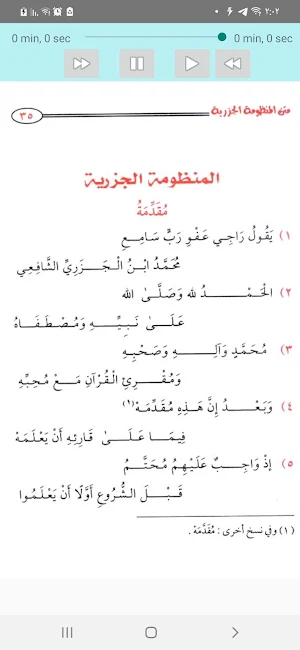 ٢:٠٢
0 min, 0 sec
0 min, 0 sec
متن المنظومة الجزرية
٣٥
المنظومة الجزرية
مُقَدِّمَةُ
١) يَقُولُ رَاجِي عَفْوِ رَبٍّ سَامِعِ
مُحَمَّدُ ابْنُ الْجَزَرِيِّ الشَّافِعِي
٢) الْحَمْدُ لله وَصَلَّىٰ الله
عَلَىٰ نَبِيِّهِ وَمُصْطَفَاهُ
٣) مُحَمَّدٍ وَآلِهِ وَصَحْبِهِ
وَمُقْرِئِ الْقُرْآنِ مَعْ مُحِبِّهِ
٤) وَبَعْدُ إِنَّ هَذِهِ مُقَدِّمَهْ(١)
فِيمَا عَلَىٰ قَارِئِهِ أَنْ يَعْلَمَهْ
٥) إِذْ وَاجِبٌ عَلَيْهِمُ مُحَتَّمُ
قَبْلَ الشُّرُوعِ أَوَّلًا أَنْ يَعْلَمُوا
(١) وفي نسخ أخرى : مُقَدَّمَهْ .